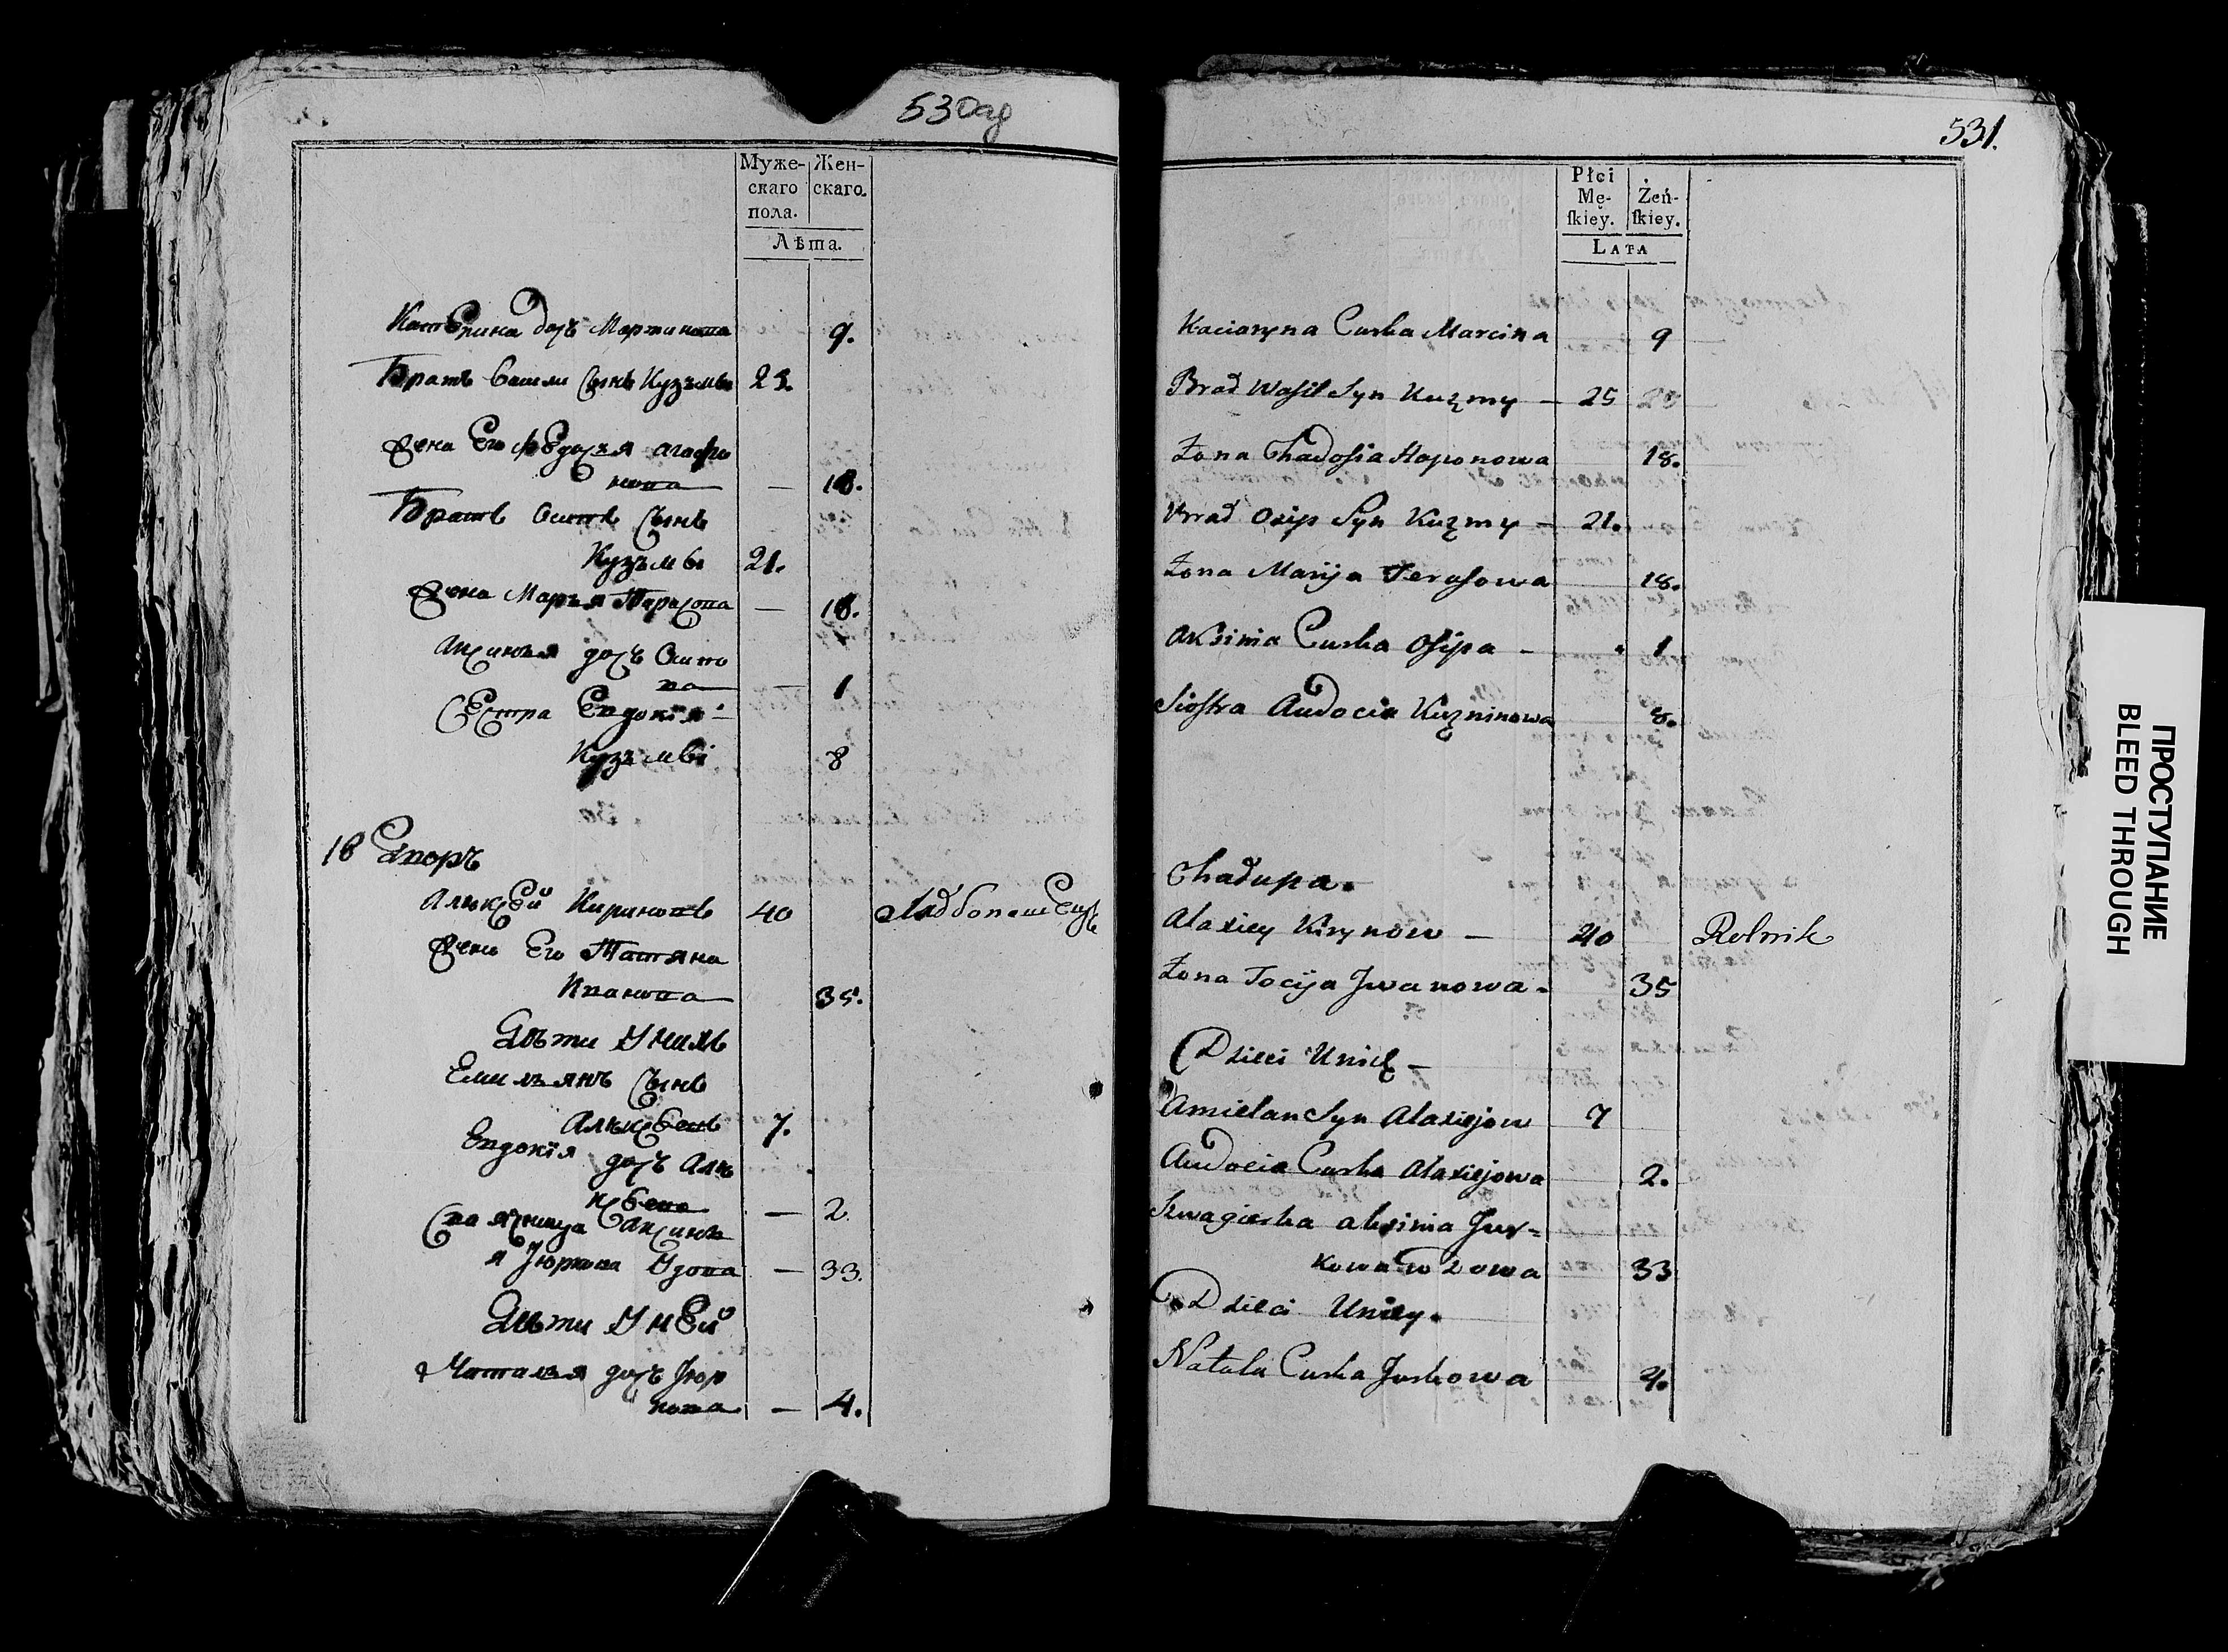 530 об
Муже-
скаго
пола.
Жен-
скаго.
Лѣта.
Катерина дочь Мартинова 9.
Братъ Васили Сынъ Кузьмы 25.
Жена Его Федосья Агафо
нова — 18.
Братъ Осипъ Сынъ
Кузьмы 21.
Жена Марья Тарасова — 18.
Аксинья дочь Осипо
ва — 1
Сестра Евдокія
Кузьмы 8
18 Дворъ
Алексѣй Кириновъ 40 Хлѣбопашецъ
Жена Его Татяна
Иванова 35.
Дѣти У нихъ
Емильянъ Сынъ
Алексѣевъ 7.
Евдокія дочь Але
ксѣева — 2.
Своячница Аксинь
я Юркова Удова — 33.
Дѣти У нЕй
Наталья дочь Юр
кова — 4.
531.
Płci
Mę-
ſkiey.
Żeń-
ſkiey.
LATA
Kaciaryna Curka Marcina 9
Brad Wasil Syn Kuzmy — 25
Żona Chadosia Haponowa 18.
Brad Osip Syn Kuzmy — 21.
Żona Maryja Terasowa 18.
Aksinia Curka Osipa — 1
Siostra Audocia Kuzminowa 8.
Chadupa.
Alaxiey Kirynow — 40 Rolnik
Żona Tacija Jwanowa. 35
Dzieci Unich —
Amielan Syn Alaxiejow 7
Audocia Curka Alaxiejowa 2.
Szwagierka aksinia Jur=
kowa Wdowa 33
Dzieci Uniey.
Natala Curka Jurkowa 4.
ПРОСТУПАНИЕ
BLEED THROUGH